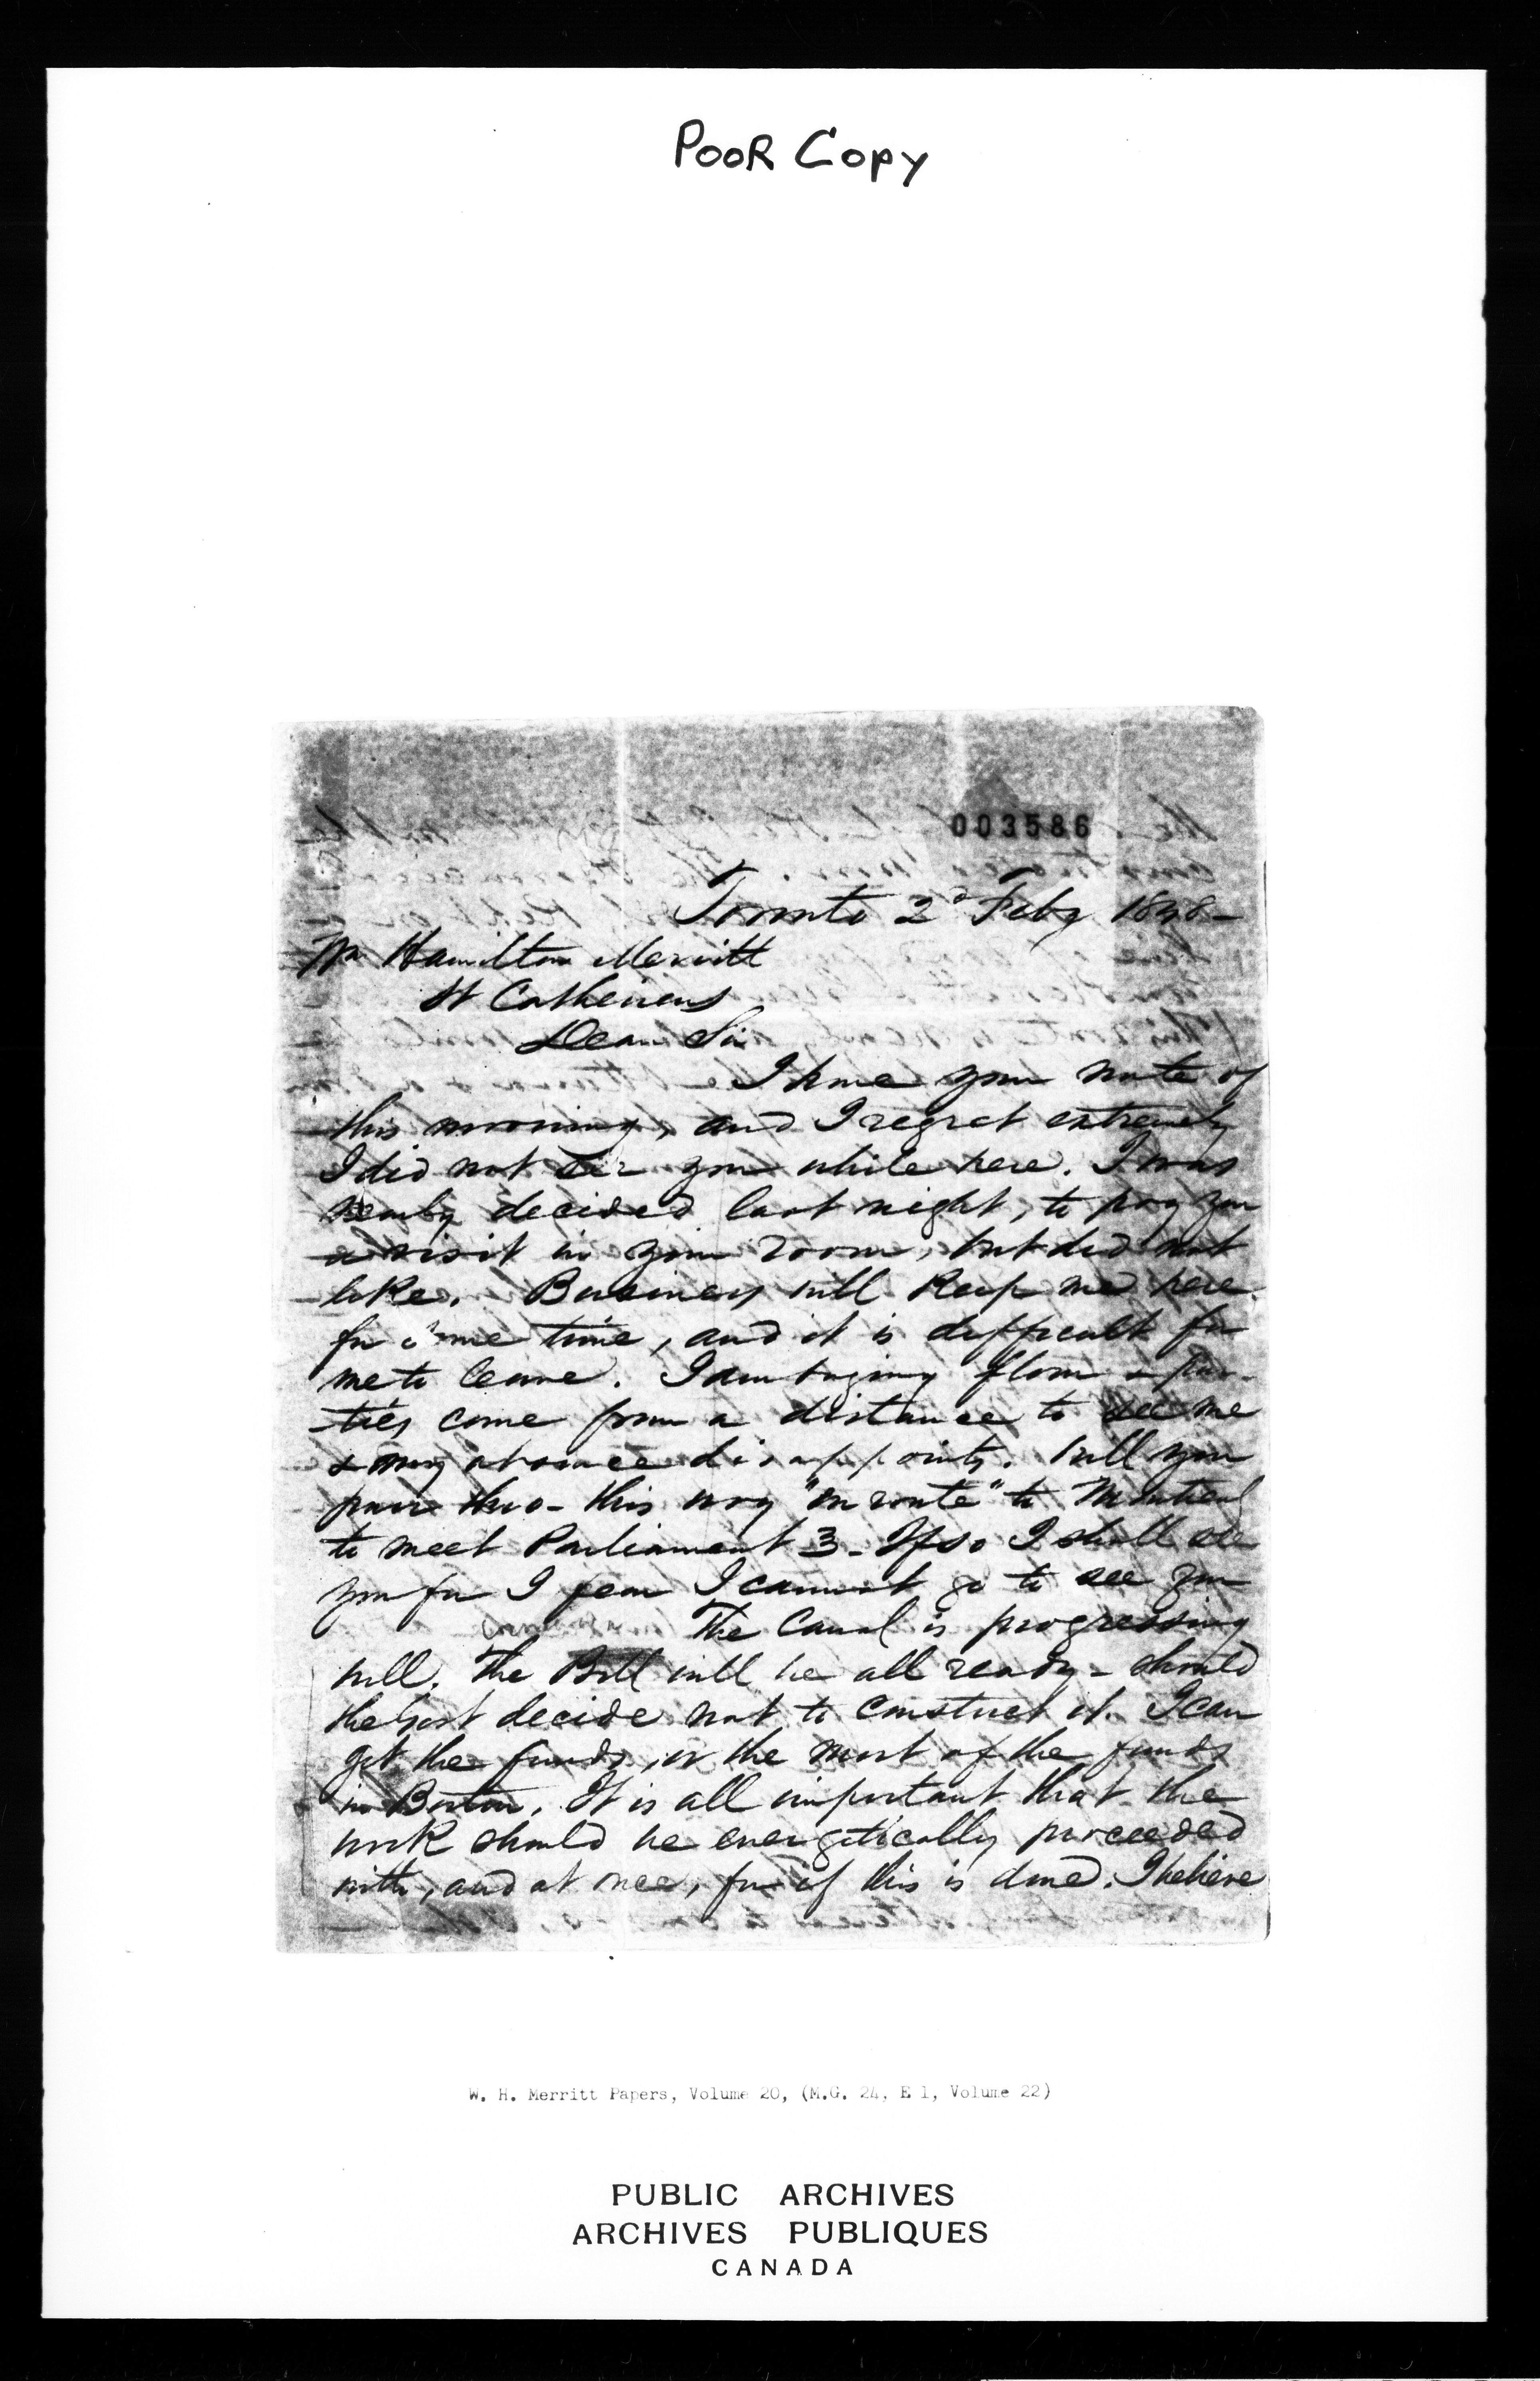 POOR Copy
003586
Toronto 2d Feby 1848 -
Wm Hamilton Merritt
St Catherines
Dear Sir
I have your note of
this morning, and I regret extremely
I did not see you while here. I was
nearly decided last night, to pay you
a visit in your room, but did not
like. Business will Keep me here
for some time, and it is difficult for
me to leave. I am buying flour & par-
ties come from a distance to see me
& my absence disappoints. Will you
pass thro - this way "en route" to Montreal
to meet Parliament? - If so I shall see
you for I fear I cannot go to see you
The Canal is progressing
well. The Bill will be all ready - should
the Govt decide not to construct it. I can
get the funds, or the most of the funds
in Boston. It is all important that the
work should be energetically proceeded
with, and at once, for if this is done. I believe
W. H. Merritt Papers, Volume 20, (M.G. 24, E 1, Volume 22)
PUBLIC ARCHIVES
ARCHIVES PUBLIQUES
CANADA